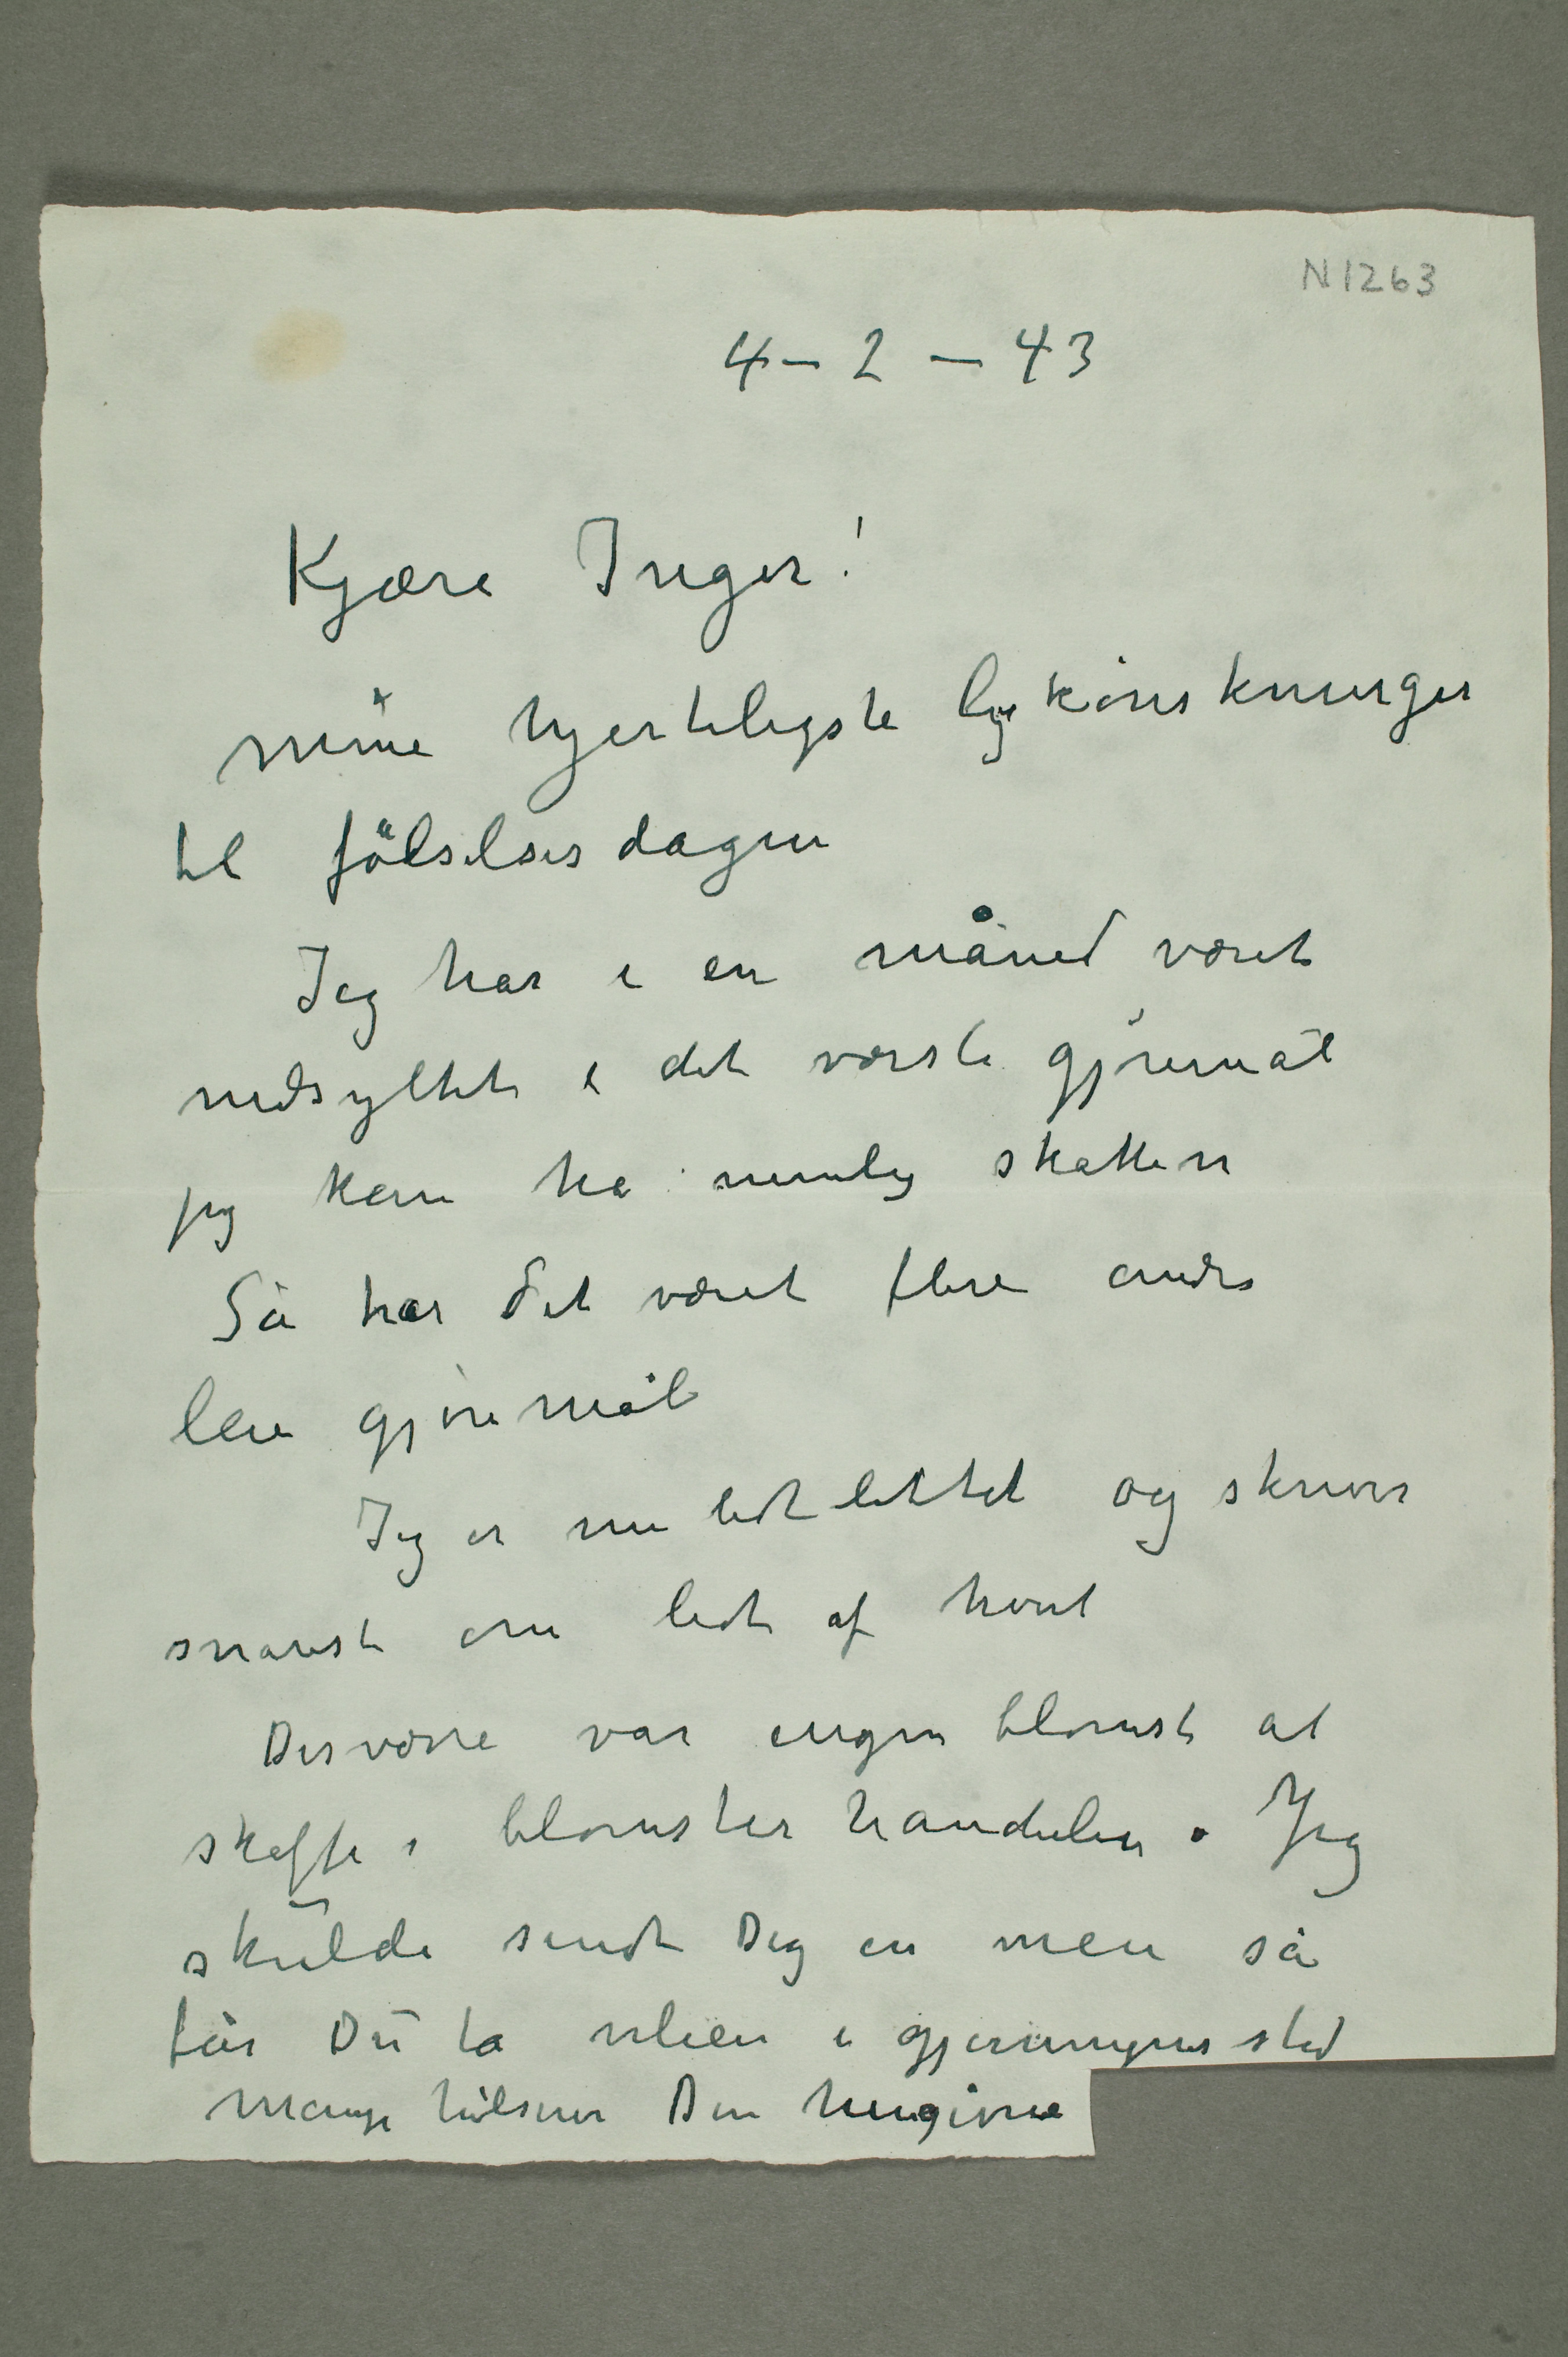 N 1263
4 – 2 – 43
Kjære Inger!
mine hjerteligste lykönskninger
til fölselsesdagen
Jeg har i en måned været
nedsyltet i det værste gjøremål
jeg kan ha nemlig skatten
Så har det været flere andre
leie gjøremål
Jeg er nu lidt lettet og skriver
snarest om lidt af hvert
Desværre var ingen blomst at
skaffe i blomsterhandelen. Jeg
skulde sendt Dig en men så
får Du ta viljen i gjerningens sted
mange hilsener Din hengivne